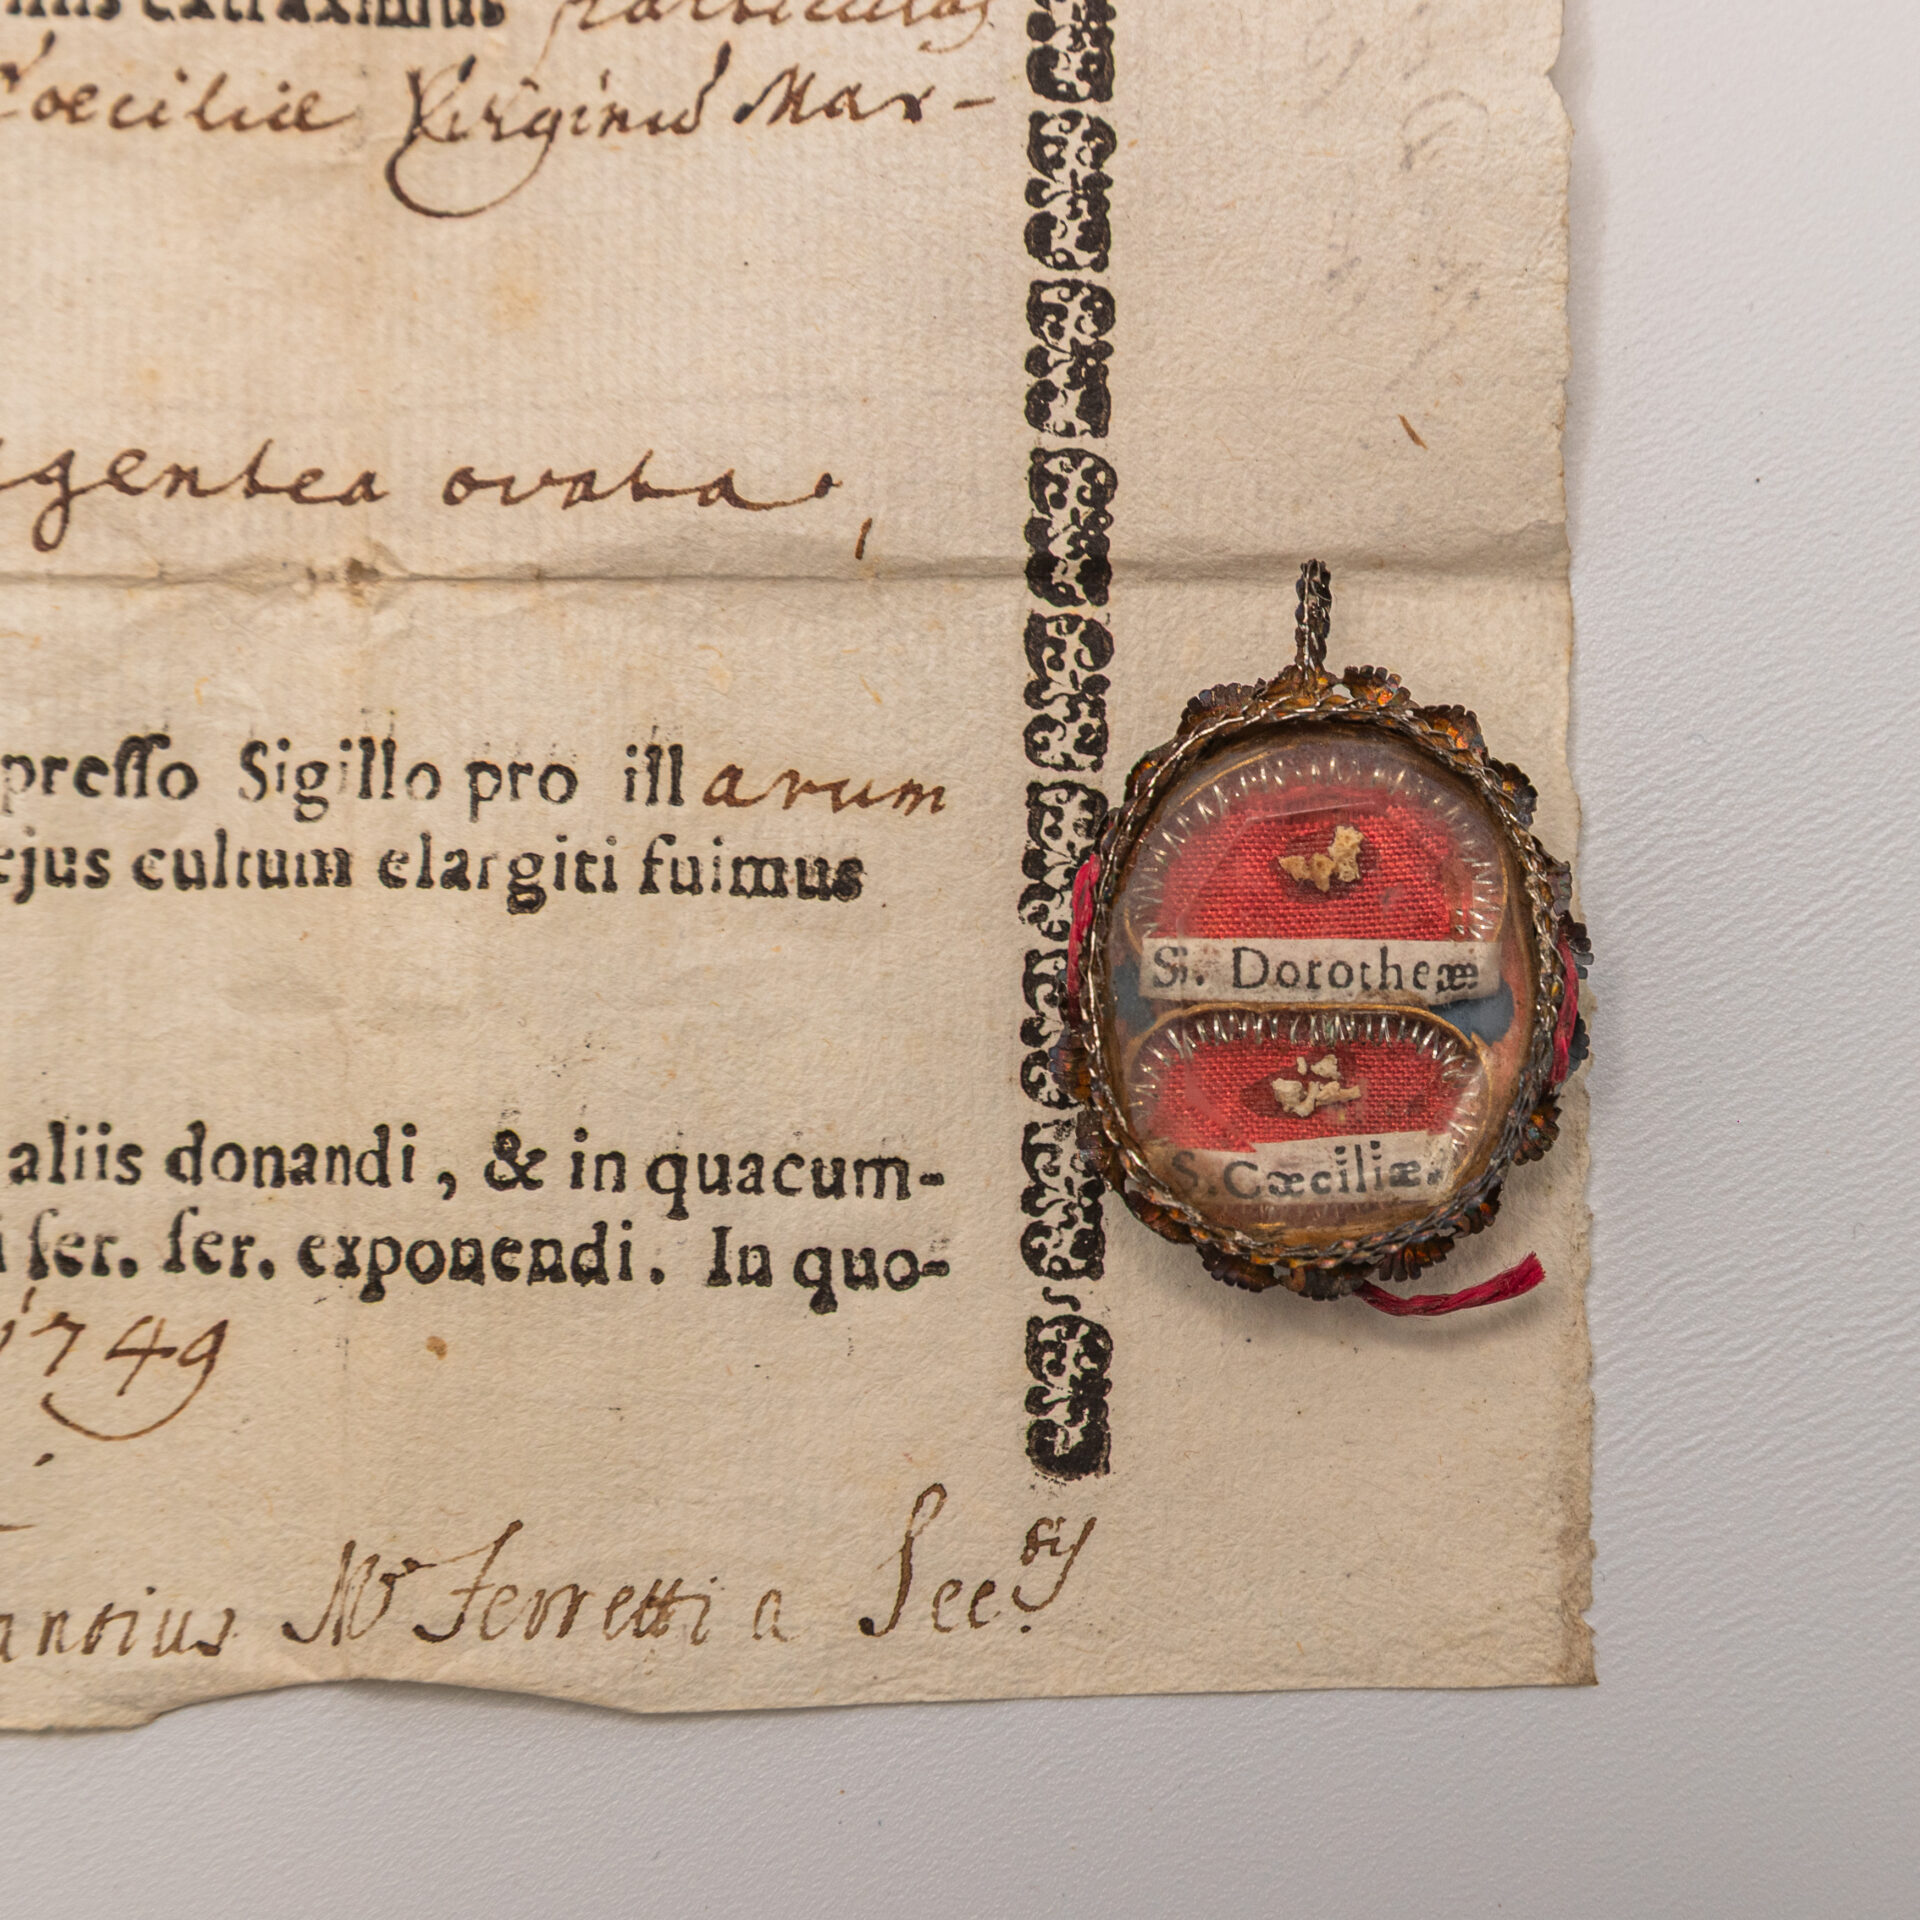 extraximus particulas
Coeciliæ Virginũ Mar-
gentea ovata,
presso Sigillo pro illarum
ejus cultum elargiti fuimus
aliis donandi, & in quacum-
ser. ser. exponendi. In quo-
1749
antius Mr Ferretti a Secrij
S. Dorotheæ
S. Cœciliæ.